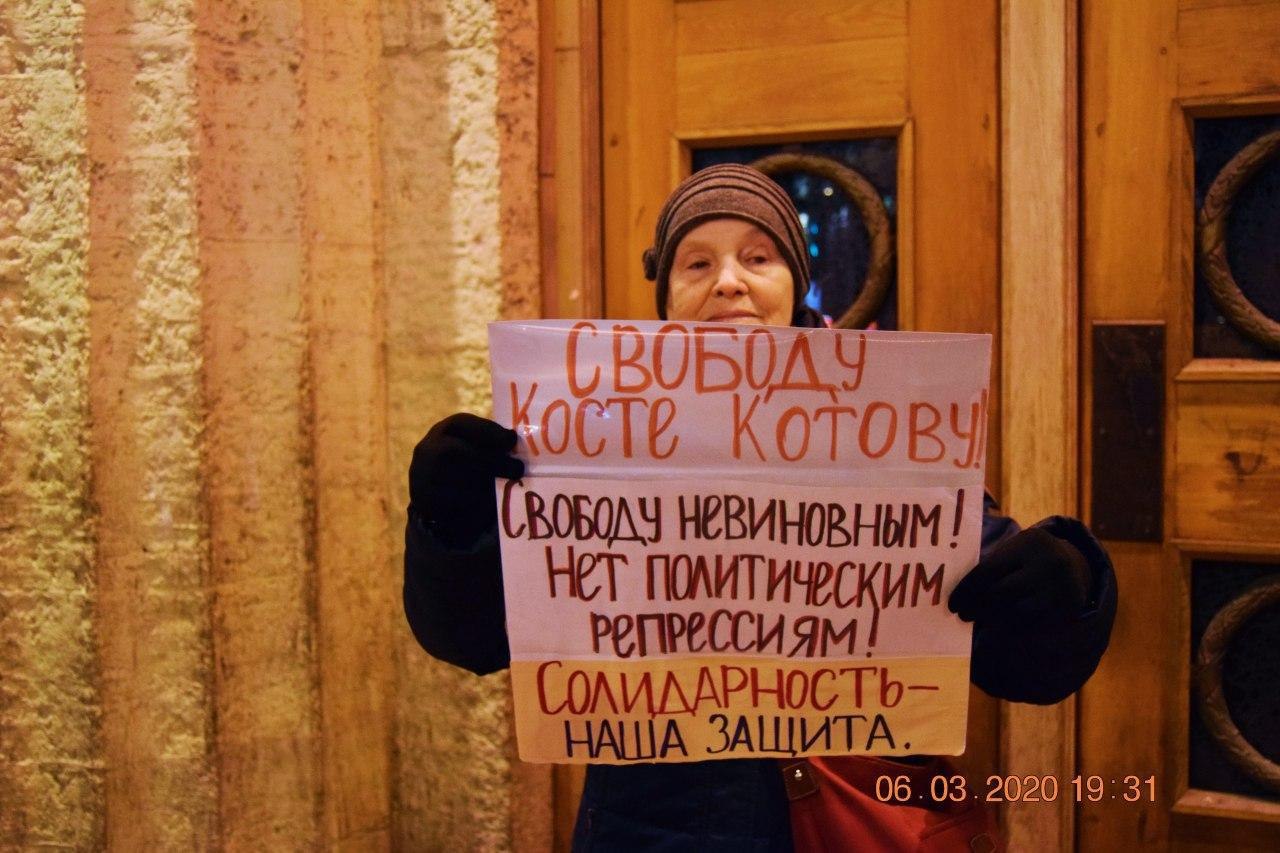 СВОБОДУ
КОСТЕ КОТОВУ!
СВОБОДУ НЕВИНОВНЫМ!
НЕТ ПОЛИТИЧЕСКИМ
РЕПРЕССИЯМ!
СОЛИДАРНОСТЬ–
НАША ЗАЩИТА.
06.03.2020 19:31